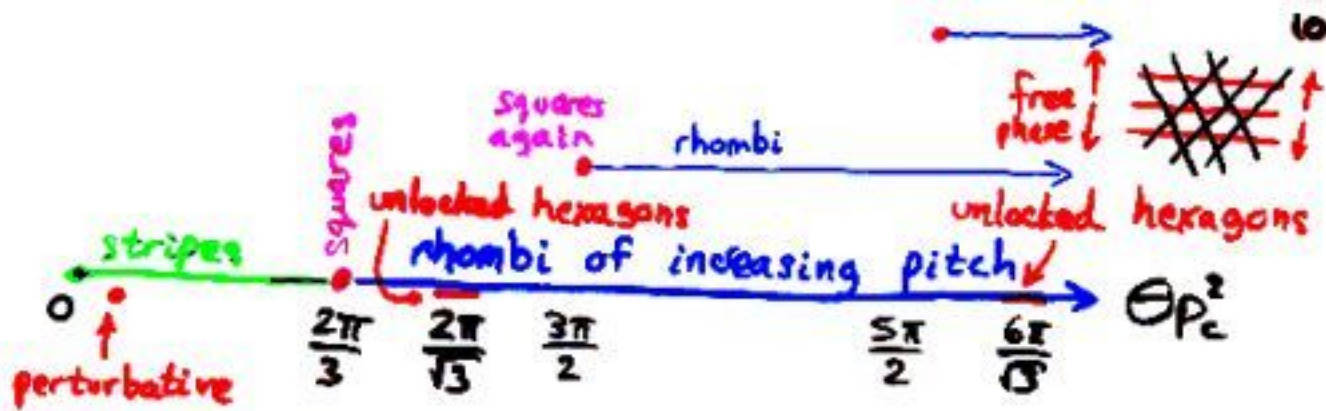 10
squares
again
free
phase
rhombi
squares
unlocked hexagons
unlocked hexagons
stripes
rhombi of increasing pitch
0
2π/3
2π/√3
3π/2
5π/2
6π/√3
Θp_c²
perturbative